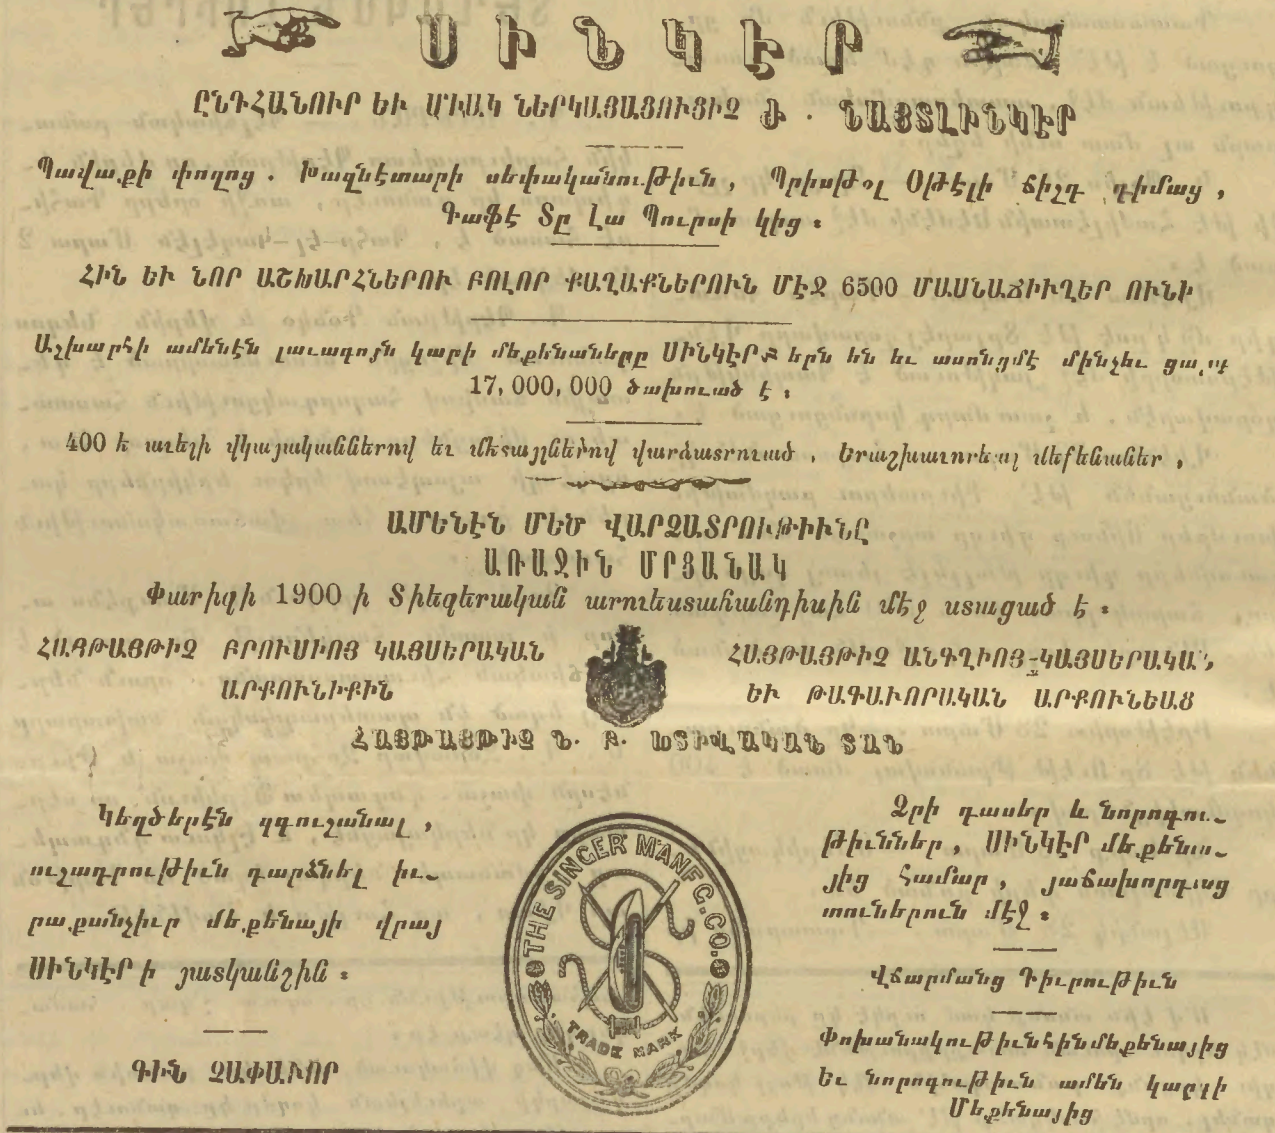 ՍԻՆԿԷՐ
ԸՆԴՀԱՆՈՒՐ ԵՒ ՄԻԱԿ ՆԵՐԿԱՅԱՑՈՒՑԻՉ Ժ. ՆԱՅՏԼԻՆԿԷՐ
Պավաքի փողոց. Խազնէտարի սեփականութիւն, Պրիսթօլ Օթէլի ճիշդ դիմաց,
Գաֆէ Տը Լա Պուրսի կից։
ՀԻՆ ԵՒ ՆՈՐ ԱՇԽԱՐՀՆԵՐՈՒ ԲՈԼՈՐ ՔԱՂԱՔՆԵՐՈՒՆ ՄԷՋ 6500 ՄԱՍՆԱՃԻՒՂԵՐ ՈՒՆԻ
Աշխարհի ամենէն լաւագոյն կարի մեքենաները ՍԻՆԿԷՐներն են եւ ասոնցմէ մինչեւ ցարդ
17,000,000 ծախուած է,
400 է աւելի վկայականներով եւ մետայլներով վարձատրուած, Երաշխաւորեալ մեքենաներ,
ԱՄԵՆԷՆ ՄԵԾ ՎԱՐՁԱՏՐՈՒԹԻՒՆԸ
ԱՌԱՋԻՆ ՄՐՑԱՆԱԿ
Փարիզի 1900 ի Տիեզերական արուեստահանդիսին մէջ ստացած է։
ՀԱՅԹԱՅԹԻՉ ԲՐՈՒՍԻՈՅ ԿԱՅՍԵՐԱԿԱՆ
ԱՐՔՈՒՆԻՔԻՆ
ՀԱՅԹԱՅԹԻՉ ԱՆԳՂԻՈՅ ԿԱՅՍԵՐԱԿԱՆ
ԵՒ ԹԱԳԱՒՈՐԱԿԱՆ ԱՐՔՈՒՆԵԱՑ
ՀԱՅԹԱՅԹԻՉ Ն. Բ. ԽՏԻՎԱԿԱՆ ՏԱՆ
Կեղծերէն զգուշանալ,
ուշադրութիւն դարձնել իւ-
րաքանչիւր մեքենայի վրայ
ՍԻՆԿԷՐ ի յատկանշին։
ԳԻՆ ՉԱՓԱՒՈՐ
THE SINGER MANFG. CO.
TRADE MARK
Ձրի դասեր և նորոգու-
թիւններ, ՍԻՆԿԷՐ մեքենա-
յից համար, յաճախորդաց
տուներուն մէջ։
Վճարմանց Դիւրութիւն
Փոխանակութիւն հին մեքենայից
Եւ նորոգութիւն ամեն կարգի
Մեքենայից